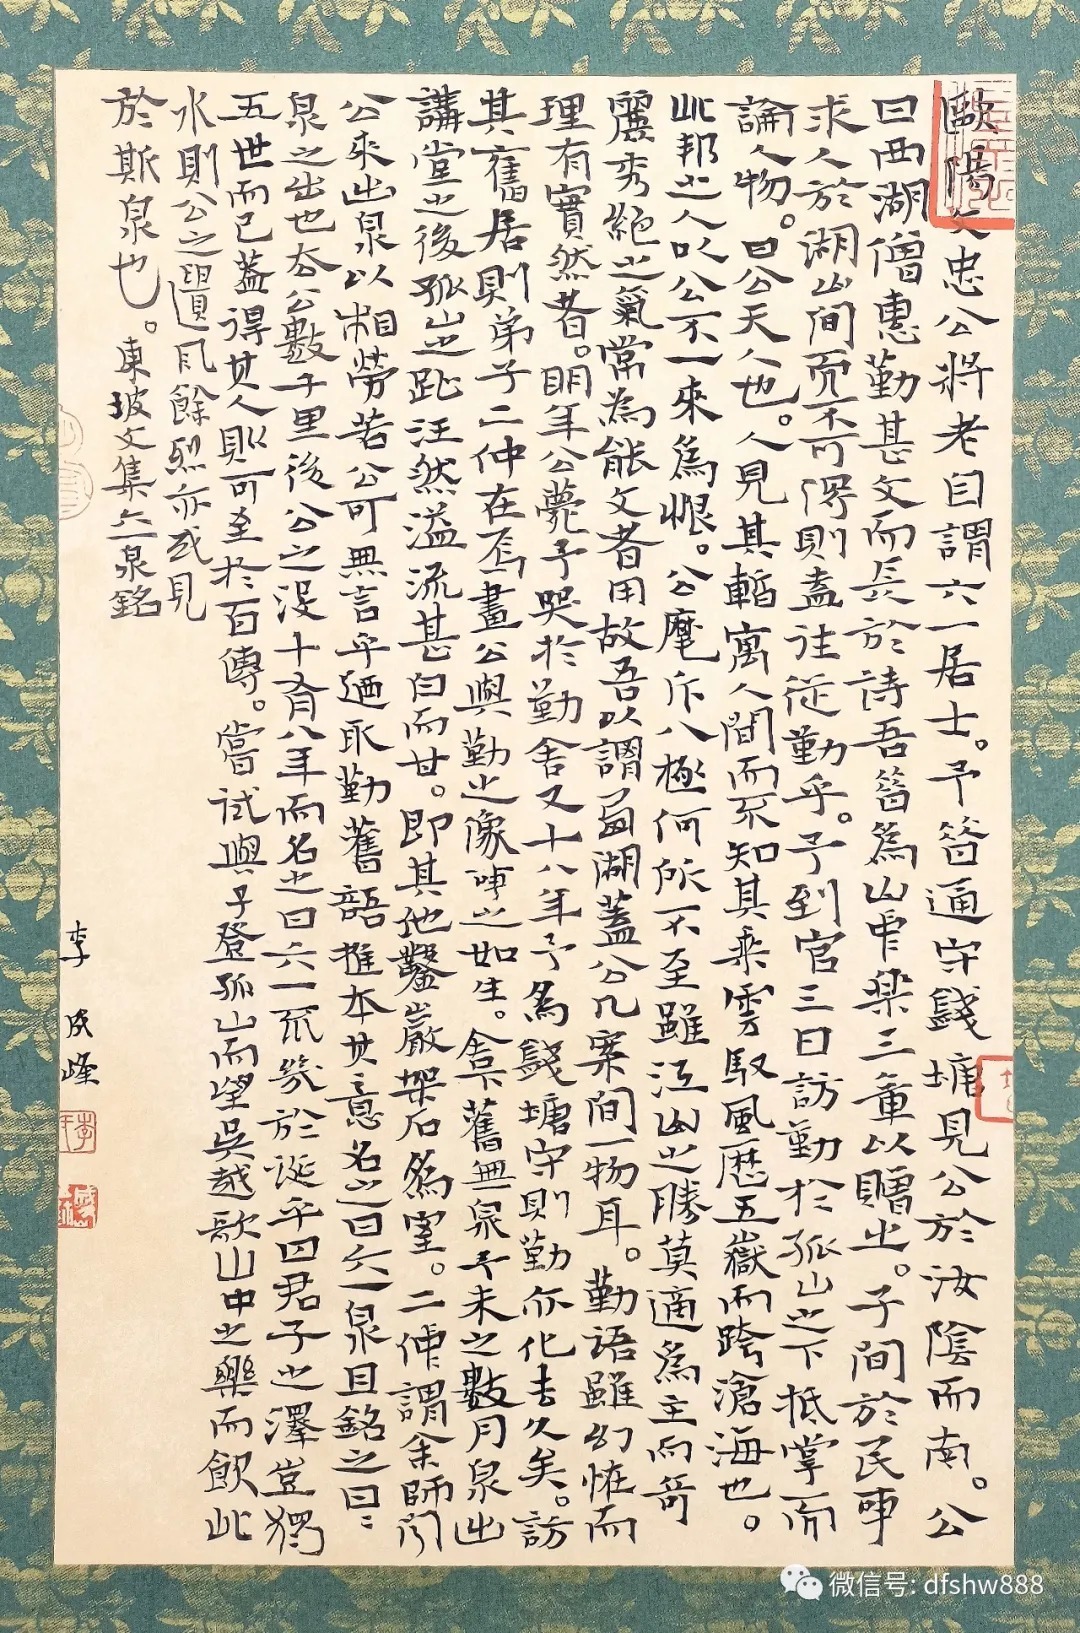 歐陽文忠公將老自謂六一居士。予昔通守錢塘見公於汝陰而南。公
曰西湖僧惠勤甚文而長於詩吾昔為山中樂三章以贈之。子間於民事
求人於湖山間而不可得則盍往從勤乎。予到官三日訪勤於孤山之下抵掌而
論人物。曰公天人也。人見其暫寓人間而不知其乘雲馭風歷五嶽而跨滄海也。
此邦之人以公不一來為恨。公麾斥八極何所不至雖江山之勝莫適為主而奇
麗秀絕之氣常為能文者用故吾以謂西湖蓋公几案間一物耳。勤語雖幻怪而
理有實然者。明年公薨予哭於勤舍又十八年予為錢塘守則勤亦化去久矣。訪
其舊居則弟子二仲在焉畫公與勤之像事之如生。舍下舊無泉予未至數月泉出
講堂之後孤山之趾汪然溢流甚白而甘。即其地鑿巖架石為室。二仲謂余師聞
公來出泉以相勞苦公可無言乎迺取勤舊語推本其意名之曰六一泉且銘之曰：
泉之出也去公數千里後公之沒十有八年而名之曰六一不幾於誕乎曰君子之澤豈獨
五世而已蓋得其人則可至於百傳。嘗試與子登孤山而望吳越歌山中之樂而飲此
水則公之遺風餘烈亦或見
於斯泉也。東坡文集六一泉銘
李成峰
微信号: dfshw888